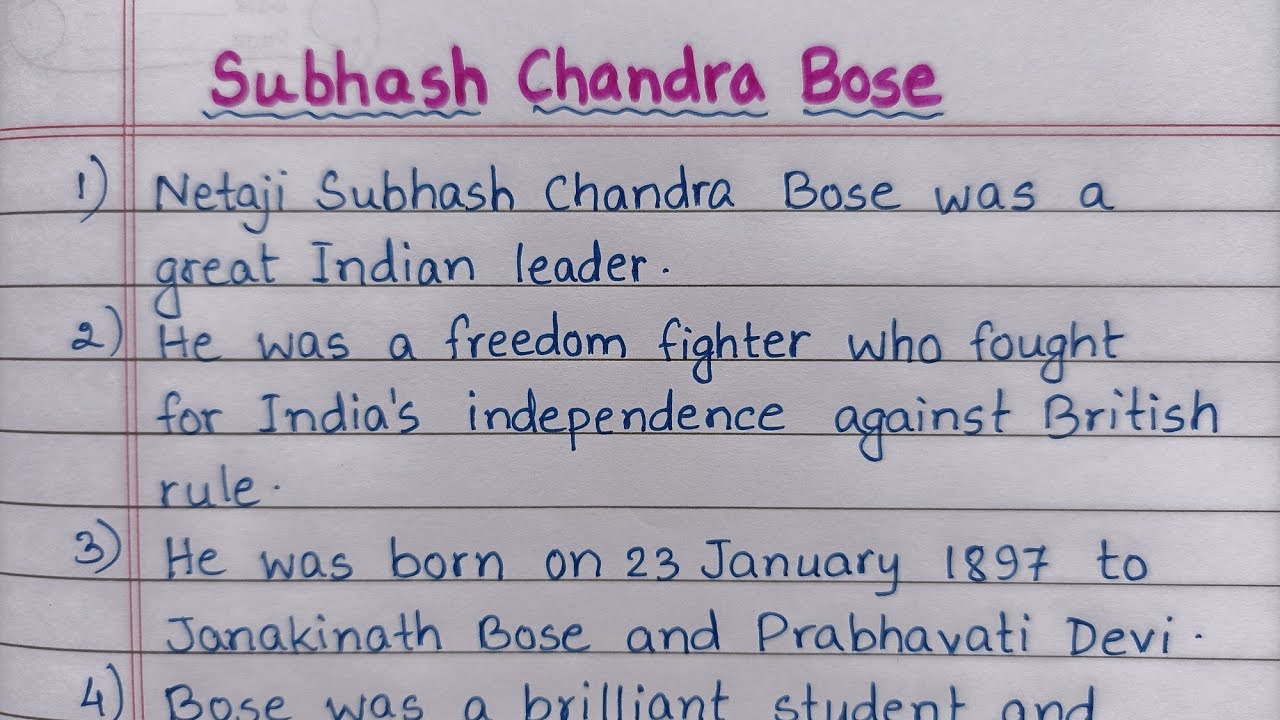 Subhash Chandra Bose
1) Netaji Subhash Chandra Bose was a
great Indian leader.
2) He was a freedom fighter who fought
for India's independence against British
rule.
3) He was born on 23 January 1897 to
Janakinath Bose and Prabhavati Devi.
4) Bose was a brilliant student and